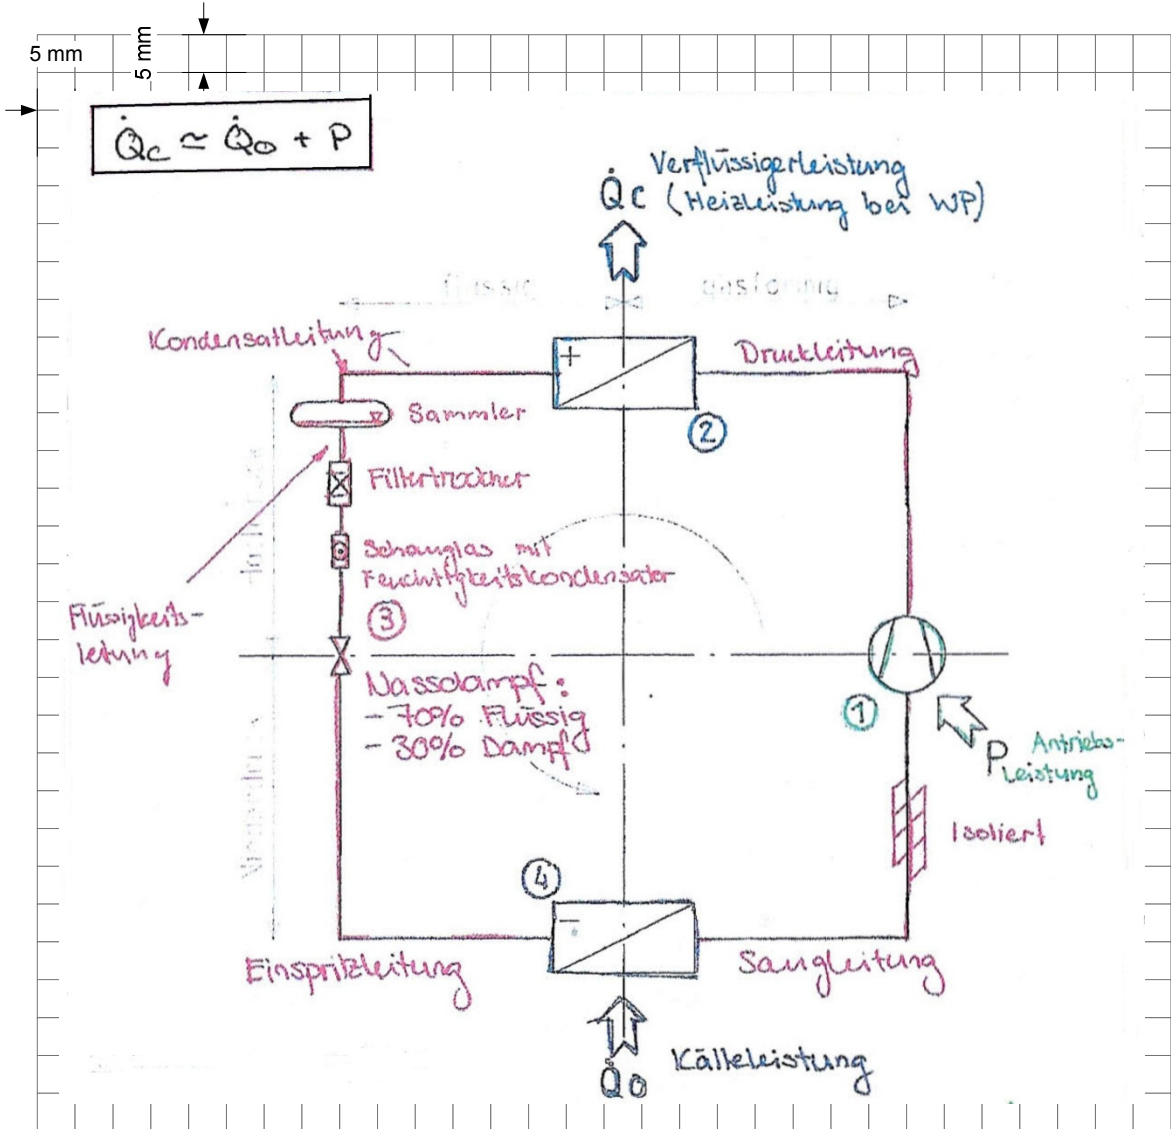 5 mm
5 mm
Q̇c ≃ Q̇o + P
Verflüssigerleistung
Q̇c (Heizleistung bei WP)
flüssig
gasförmig
Kondensatleitung
Druckleitung
+
Sammler
2
Filtertrockner
Schauglas mit
Feuchtigkeitskondensator
3
Flüssigkeits-
leitung
Nassdampf:
- 70% Flüssig
- 30% Dampf
1
P Antriebs-
Leistung
Isoliert
4
-
Einspritzleitung
Saugleitung
Kälteleistung
Q̇o